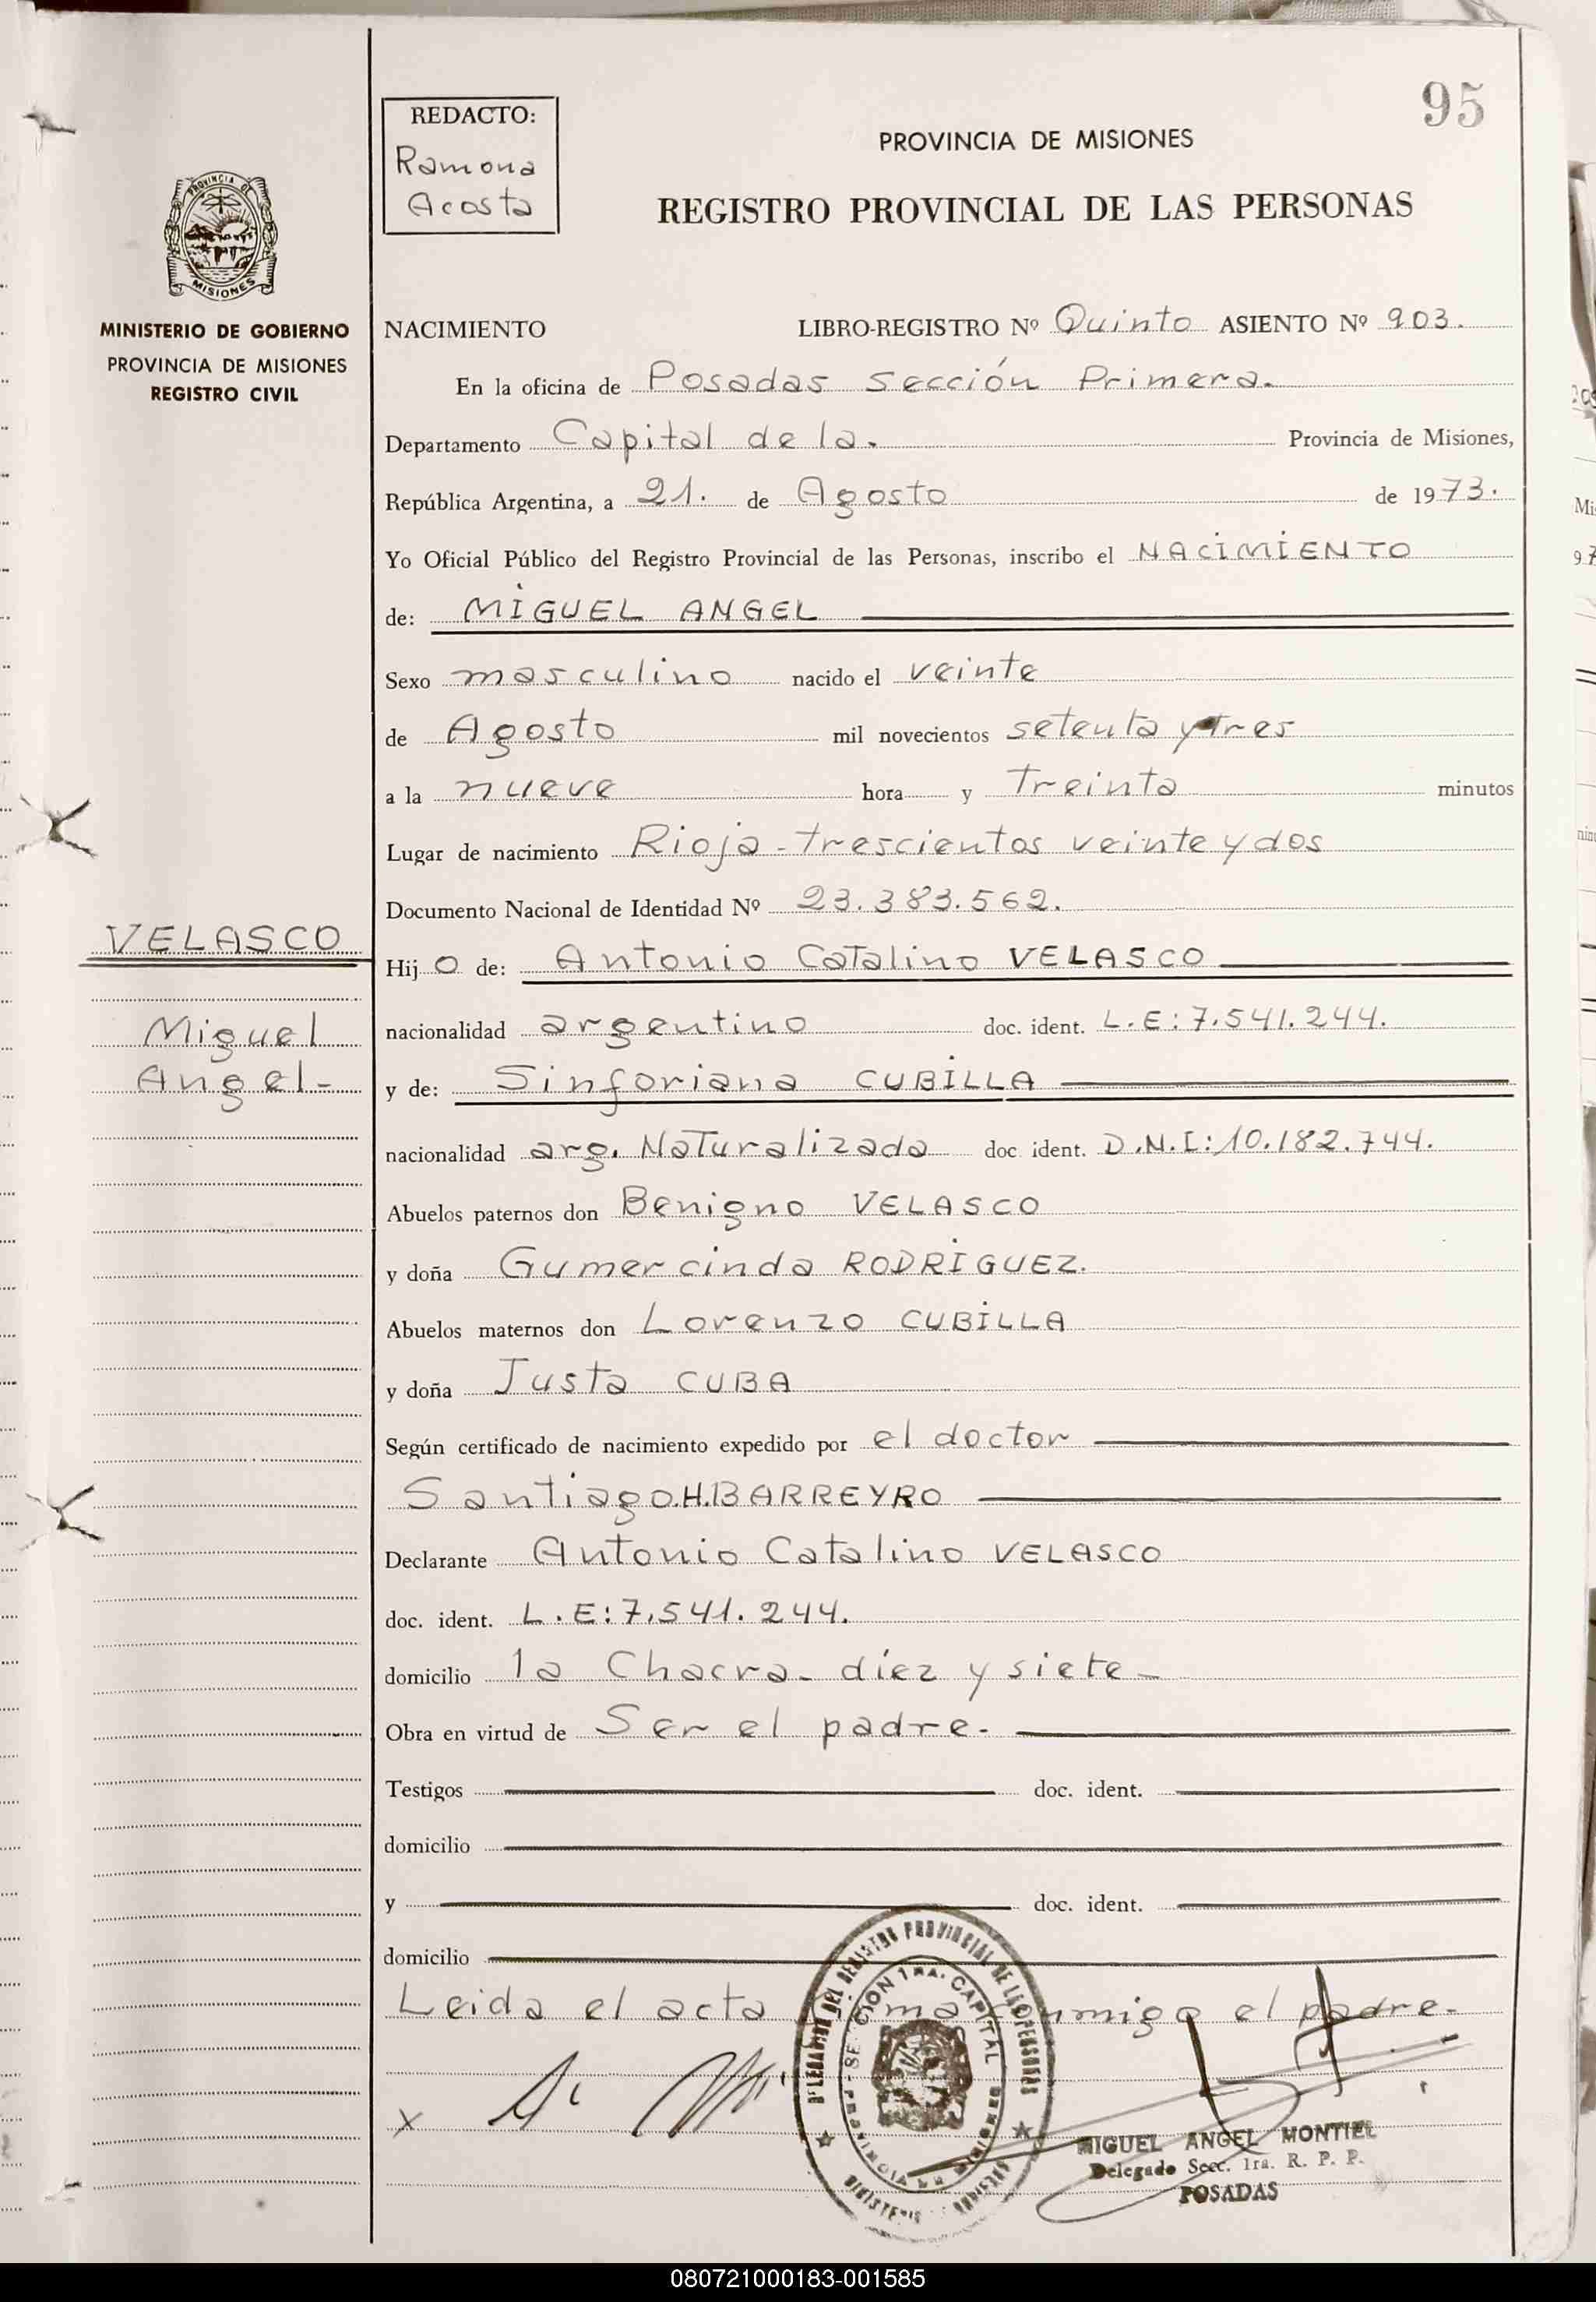 95
REDACTO:
Ramona
Acosta
PROVINCIA DE MISIONES
REGISTRO PROVINCIAL DE LAS PERSONAS
PROVINCIA DE
MISIONES
MINISTERIO DE GOBIERNO
PROVINCIA DE MISIONES
REGISTRO CIVIL
NACIMIENTO LIBRO-REGISTRO Nº Quinto ASIENTO Nº 903.
En la oficina de Posadas sección Primera.
Departamento Capital de la. Provincia de Misiones,
República Argentina, a 21. de Agosto de 1973.
Yo Oficial Público del Registro Provincial de las Personas, inscribo el NACIMIENTO
de: MIGUEL ANGEL
Sexo masculino nacido el veinte
de Agosto mil novecientos setenta y tres
a la nueve hora y Treinta minutos
Lugar de nacimiento Rioja - trescientos veinte y dos
Documento Nacional de Identidad Nº 23.383.562.
VELASCO
Hijo de: Antonio Catalino VELASCO
Miguel
Angel-
nacionalidad argentino doc. ident. L.E: 7.541.244.
y de: Sinforiana CUBILLA
nacionalidad arg. Naturalizada doc ident. D.N.I: 10.182.744.
Abuelos paternos don Benigno VELASCO
y doña Gumercinda RODRIGUEZ.
Abuelos maternos don Lorenzo CUBILLA
y doña Justa CUBA
Según certificado de nacimiento expedido por el doctor
Santiago.H.BARREYRO
Declarante Antonio Catalino VELASCO
doc. ident. L.E: 7.541.244.
domicilio la Chacra- diez y siete-
Obra en virtud de Ser el padre.
Testigos doc. ident.
domicilio
y doc. ident.
domicilio
Leida el acta el padre.
DELEGACION DEL REGISTRO PROVINCIAL DE LAS PERSONAS
SECCION 1RA. CAPITAL
x
MIGUEL ANGEL MONTIEL
Delegado Secc. 1ra. R. P. P.
POSADAS
080721000183-001585